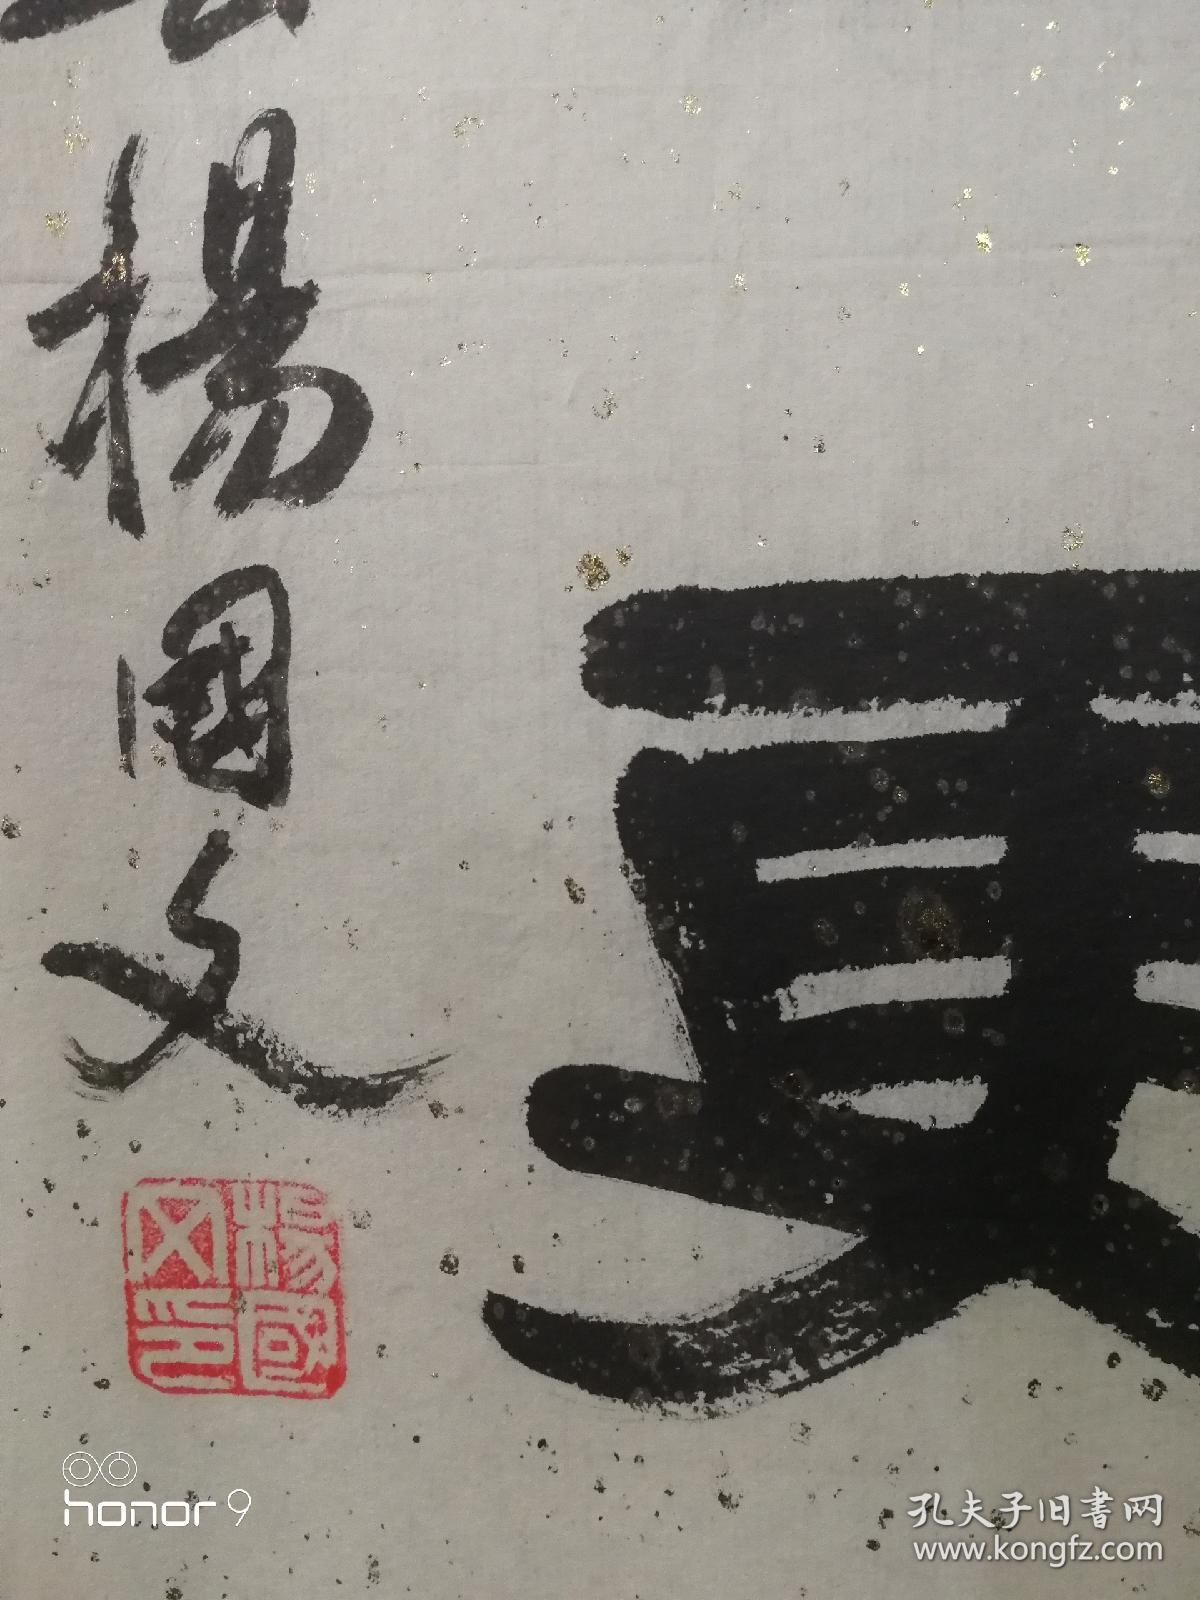 楊國文
更
楊國文印
honor 9
孔夫子旧書网
www.kongfz.com